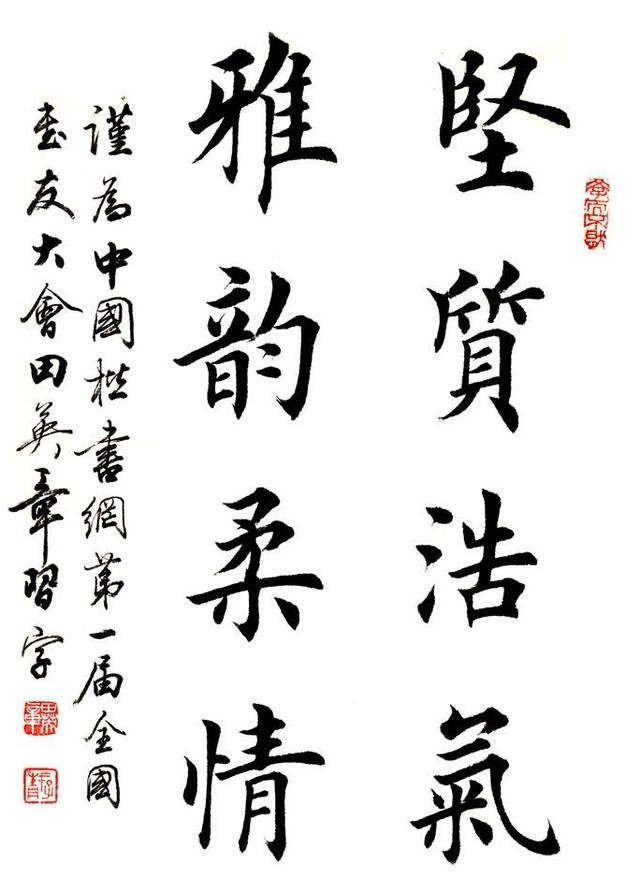 堅質浩氣
雅韵柔情
謹為中國楷書網第一届全國
書友大會田英章習字
田英章